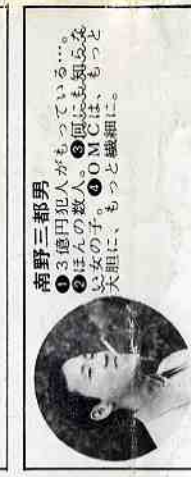 南野三都男
❶3億円犯人がもっている…。
❷ほんの数人。❸何にも知らな
い女の子。❹OMCは、もっと
大胆に、もっと繊細に。